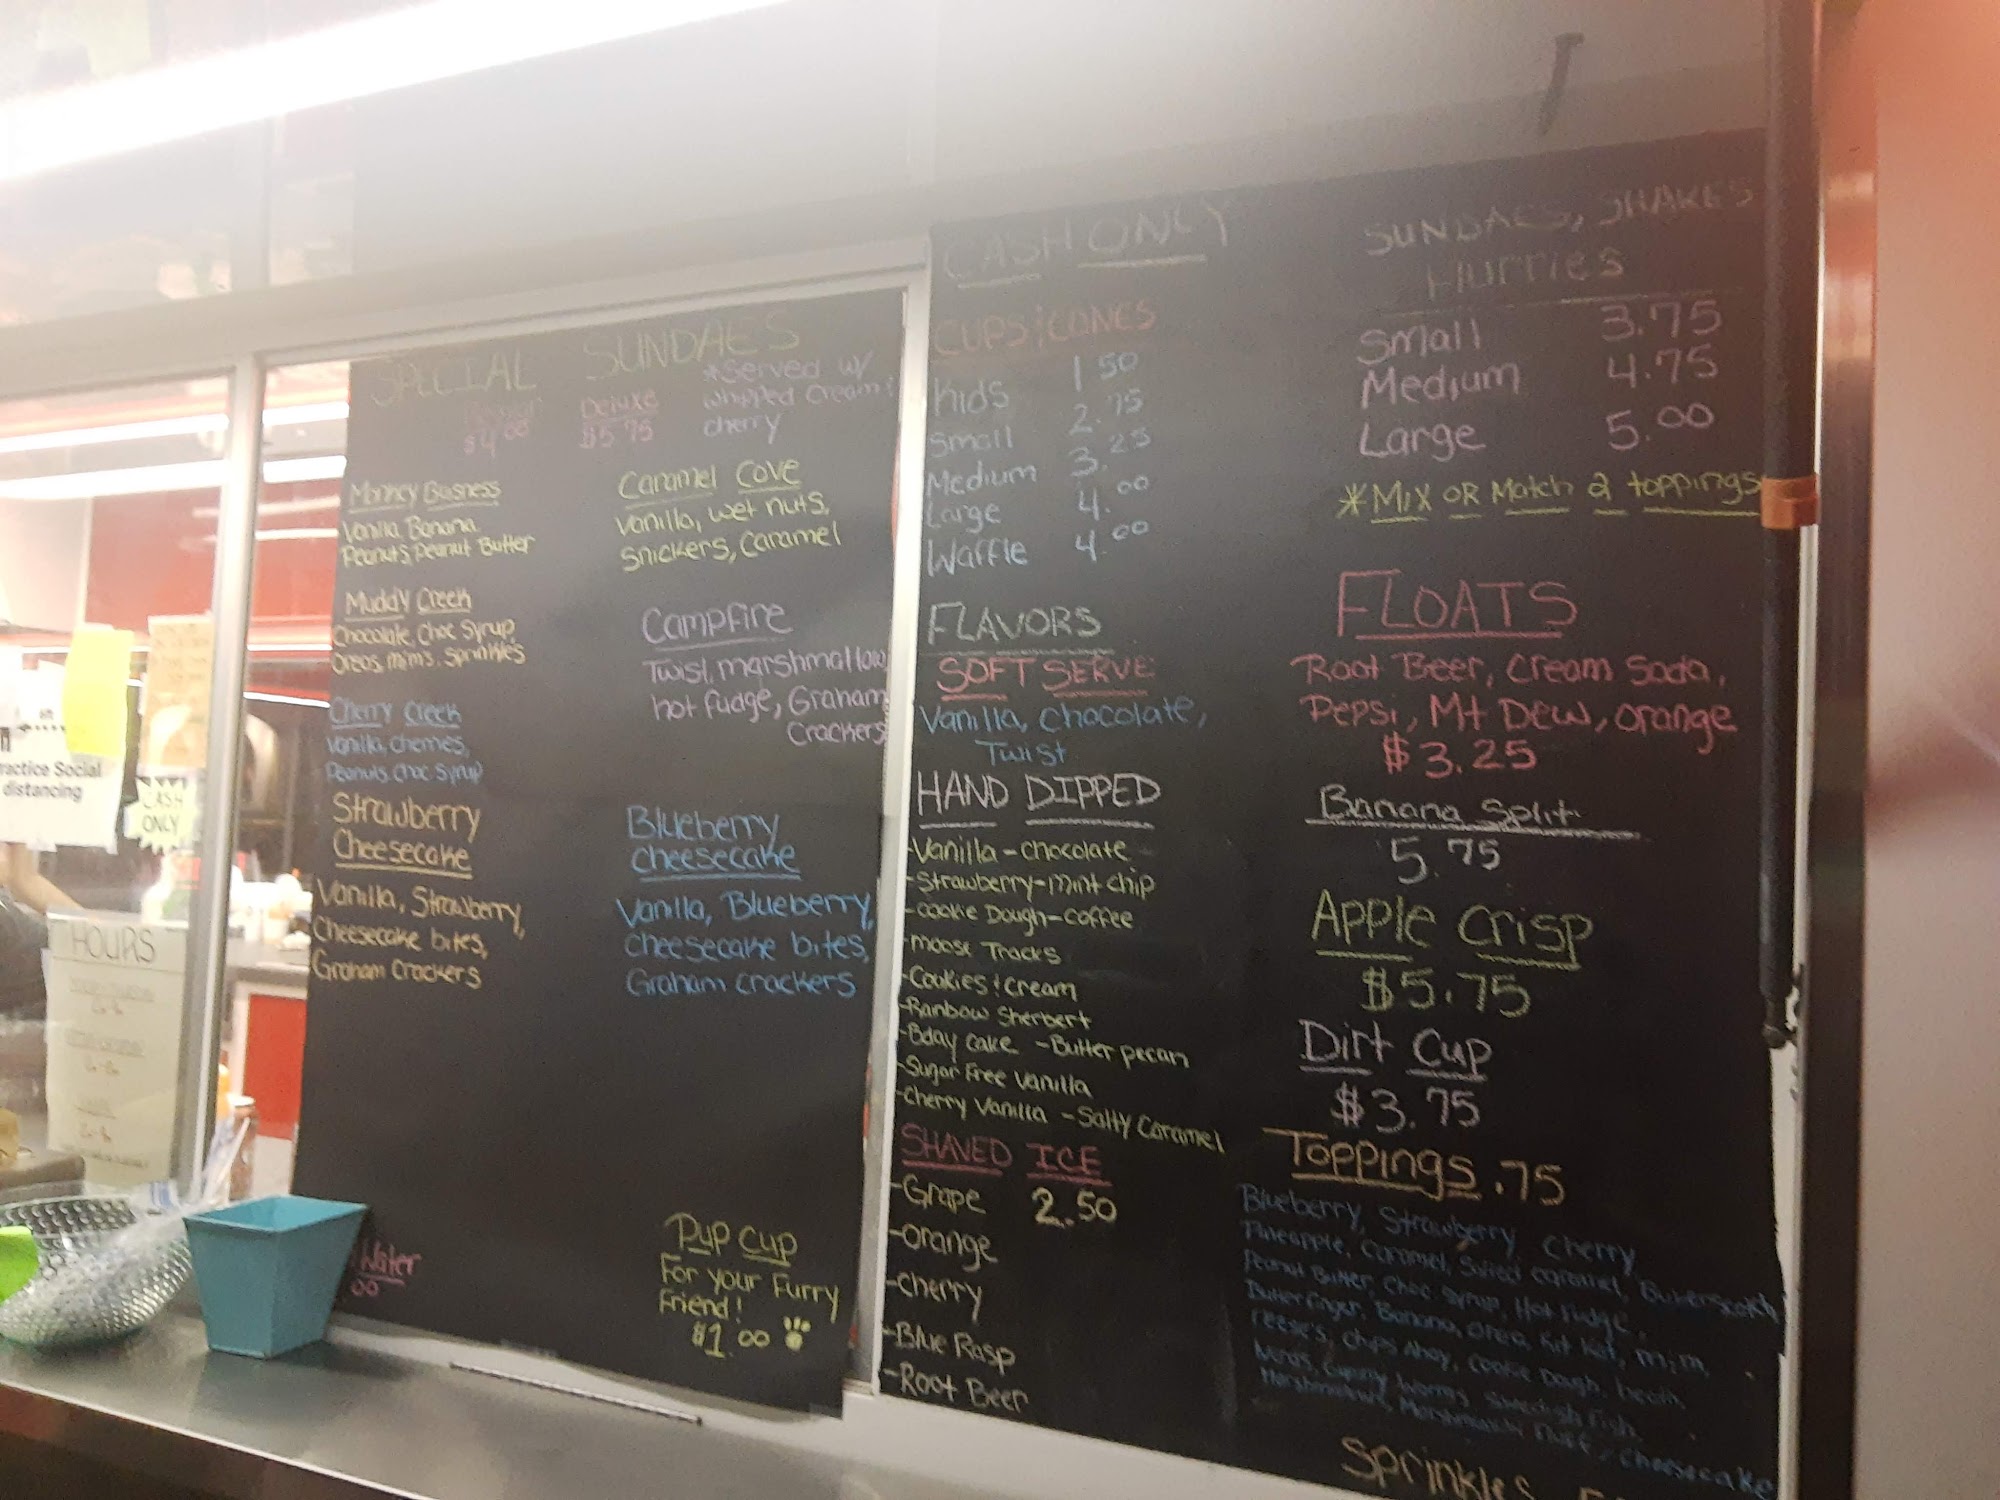 SPECIAL SUNDAES
$4.00
Deluxe
$5.75
*Served w/
whipped cream &
cherry
Monkey Business
Vanilla, Banana
Peanuts, Peanut Butter
Muddy Creek
Chocolate, Choc Syrup,
Oreos, m&m's, Sprinkles
Cherry Creek
Vanilla, cherries,
Peanuts, Choc Syrup
Strawberry
Cheesecake
Vanilla, Strawberry,
Cheesecake bites,
Graham Crackers
Caramel Cove
Vanilla, wet nuts,
Snickers, Caramel
Campfire
Twist, marshmallow,
hot fudge, Graham
Crackers
Blueberry
Cheesecake
Vanilla, Blueberry,
Cheesecake bites,
Graham crackers
Water
00
Pup Cup
For your Furry
Friend!
$1.00
CASH ONLY
CUPS & CONES
Kids 1.50
Small 2.75
Medium 3.25
Large 4.00
Waffle 4.00
FLAVORS
SOFT SERVE
Vanilla, Chocolate,
Twist
HAND DIPPED
-Vanilla -chocolate
-Strawberry -mint chip
-Cookie Dough -coffee
-moose Tracks
-Cookies & cream
-Rainbow Sherbert
-Bday Cake -Butter pecan
-Sugar Free Vanilla
-Cherry Vanilla -Salty Caramel
SHAVED ICE
-Grape 2.50
-orange
-cherry
-Blue Rasp
-Root Beer
SUNDAES, SHAKES
Hurries
Small 3.75
Medium 4.75
Large 5.00
*Mix or Match 2 toppings
FLOATS
Root Beer, Cream Soda,
Pepsi, Mt Dew, Orange
$3.25
Banana Split
5.75
Apple Crisp
$5.75
Dirt Cup
$3.75
Toppings .75
Blueberry, Strawberry, Cherry
Pineapple, Caramel, Salted caramel, Butterscotch
Peanut Butter, Choc Syrup, Hot Fudge,
Butterfinger, Banana, Oreo, Kit Kat, m&m,
reese's, Chips Ahoy, Cookie Dough, heath,
Nerds, Gummy Worms, Swedish Fish,
Marshmallow, Marshmallow Fluff, Cheesecake
Sprinkles
Practice Social
distancing
CASH
ONLY
HOURS